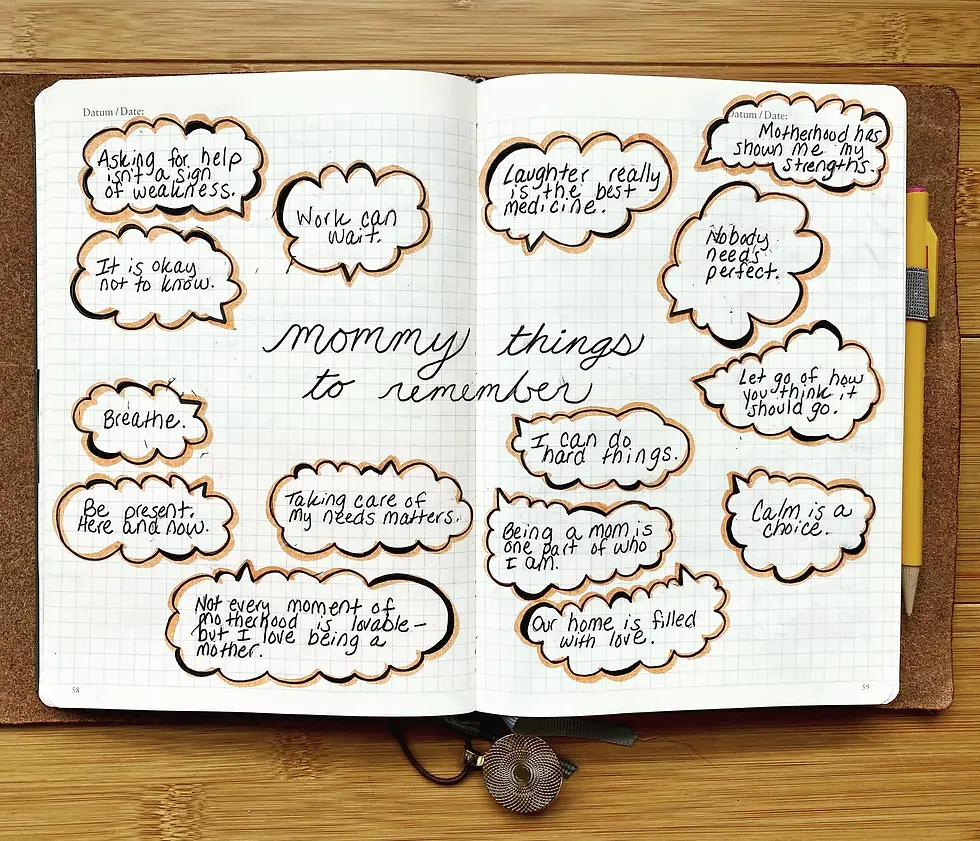 Datum / Date:
Asking for help
isn't a sign
of weakness.
Work can
wait.
It is okay
not to know.
mommy things
to remember
Breathe.
Be present.
Here and now.
Taking care of
my needs matters.
Not every moment of
motherhood is lovable –
but I love being a
mother.
58
Datum / Date:
Motherhood has
shown me my
strengths.
Laughter really
is the best
medicine.
Nobody
needs
perfect.
Let go of how
you think it
should go.
I can do
hard things.
Being a mom is
one part of who
I am.
Calm is a
choice.
Our home is filled
with love.
59